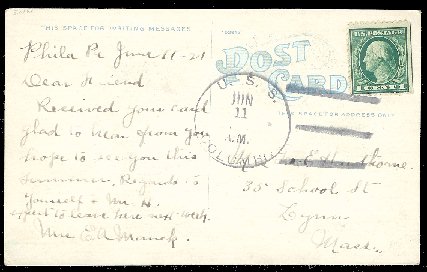 THIS SPACE FOR WRITING MESSAGES
Phila Pa June 11-21
Dear Friend
Received your card
glad to hear from you
hope to see you this
summer. Regards to
yourself & Mr. H.
expect to leave here next week.
Mrs E A
POST
CARD
U.S. POSTAGE
U.S.S.
JUN
11
A.M.
THIS SPACE FOR ADDRESS ONLY
E. Hawthorne
35 School St
Lynn
Mass.